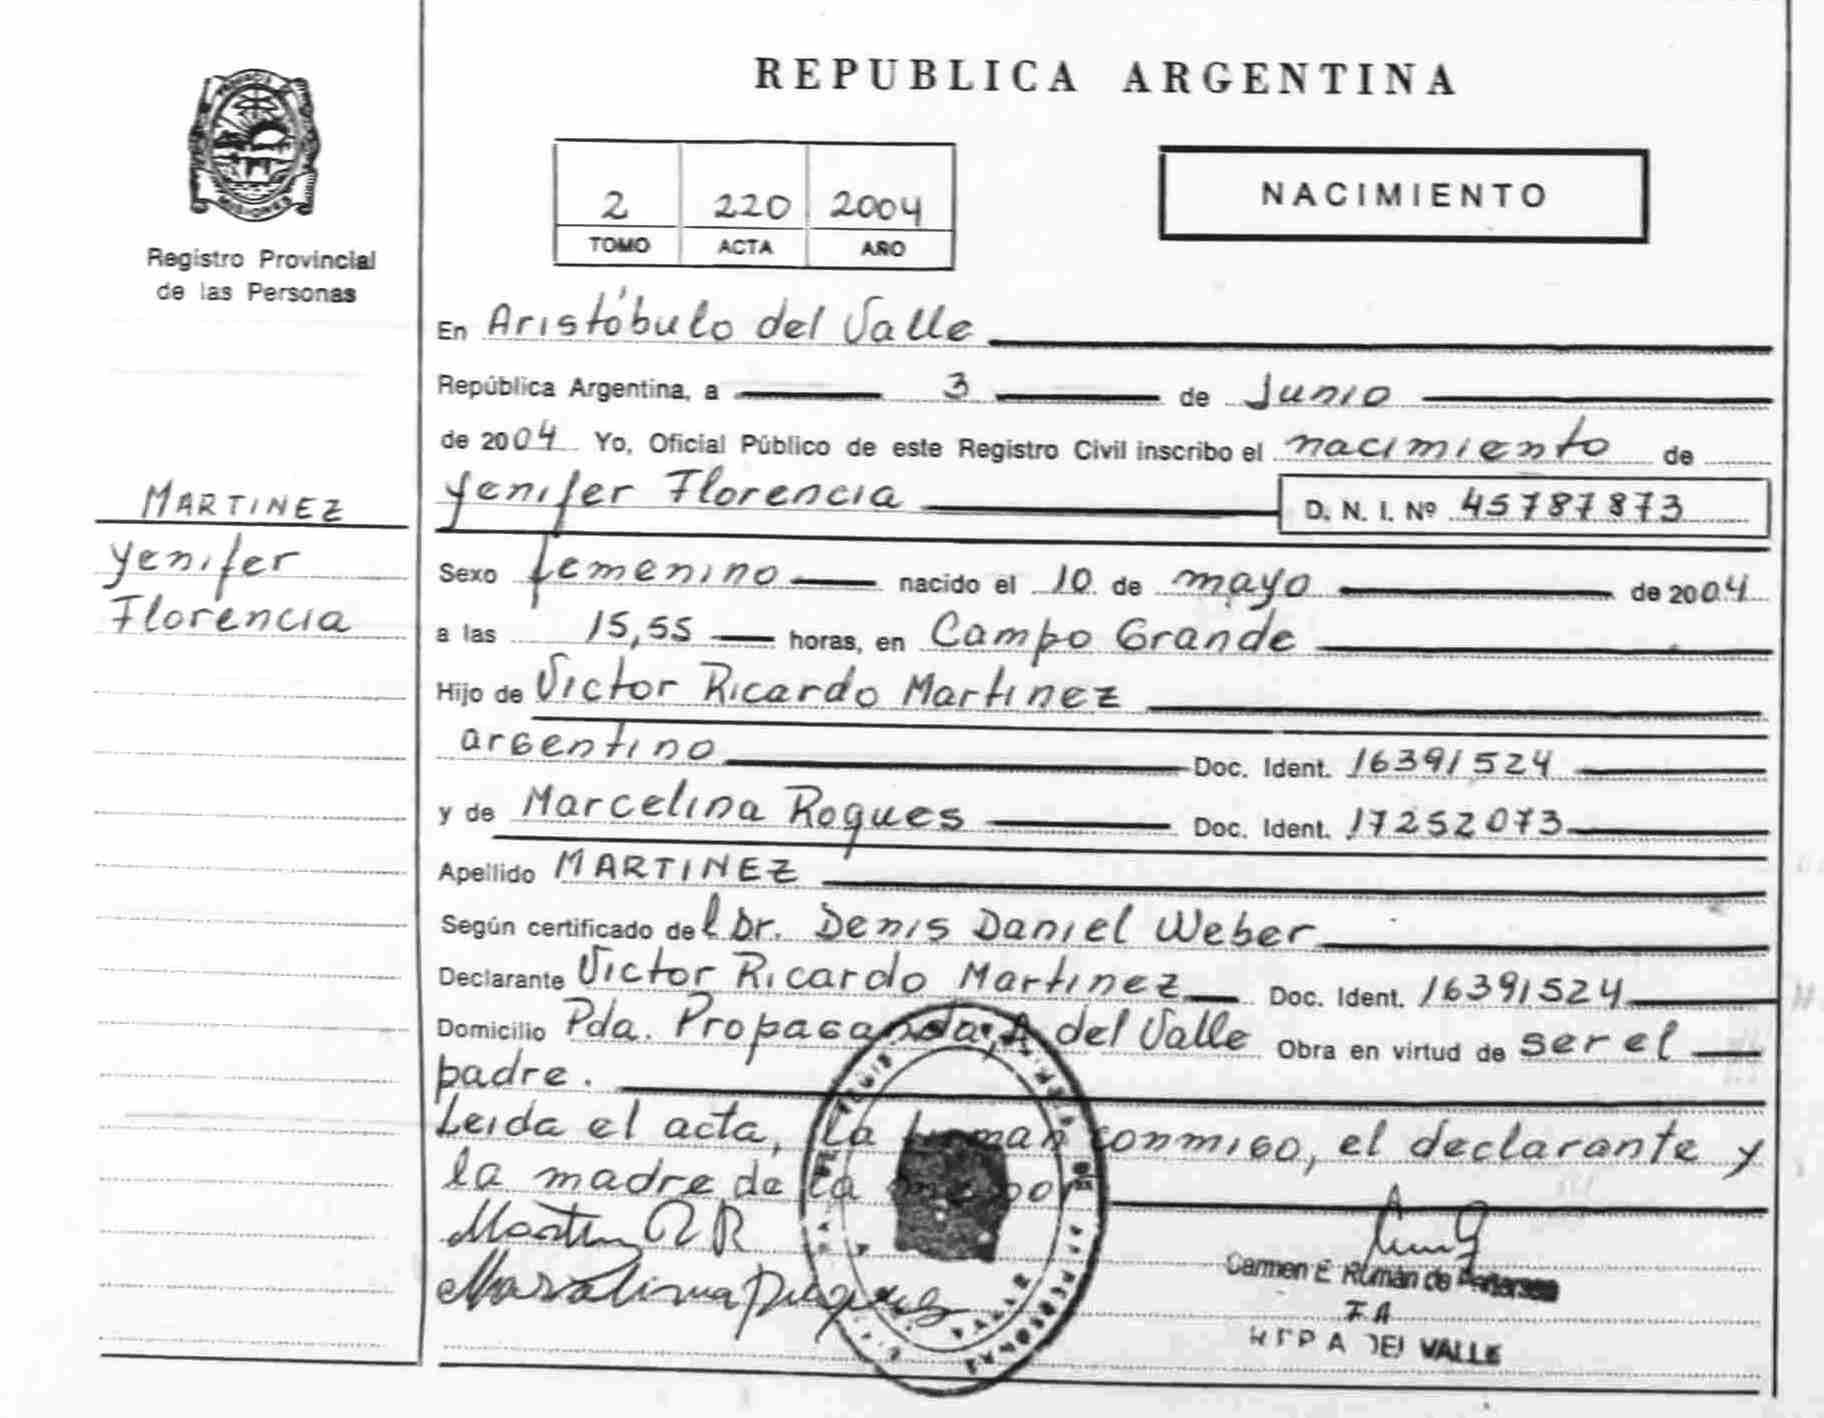 REPUBLICA ARGENTINA
MISIONES
Registro Provincial
de las Personas
2 220 2004
TOMO ACTA AÑO
NACIMIENTO
En Aristóbulo del Valle
República Argentina, a 3 de Junio
de 2004 Yo, Oficial Público de este Registro Civil inscribo el nacimiento de
Yenifer Florencia D. N. I. Nº 45787873
MARTINEZ
Yenifer
Florencia
Sexo femenino nacido el 10 de mayo de 2004
a las 15,55 horas, en Campo Grande
Hijo de Victor Ricardo Martinez
argentino Doc. Ident. 16391524
y de Marcelina Roques Doc. Ident. 17252073
Apellido MARTINEZ
Según certificado del Dr. Denis Daniel Weber
Declarante Victor Ricardo Martinez Doc. Ident. 16391524
Domicilio Pda. Propaganda, A del Valle Obra en virtud de ser el
padre.
Leida el acta, la firman conmigo, el declarante y
la madre de la menor
Carmen E. Román de
A DEL VALLE